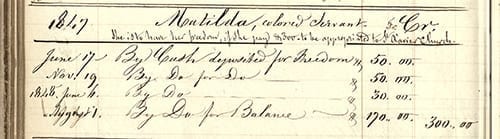 1847 Matilda, colored Servant Cr
She is to have her freedom, if she pays $300 - to be appropriated to St Xavier Church.
June 17 By Cash deposited for Freedom 50.00.
Nov. 19 By Do for Do 50.00.
1848 June 4. By Do 30.00.
August 1. By Do for Balance 170.00 300.00